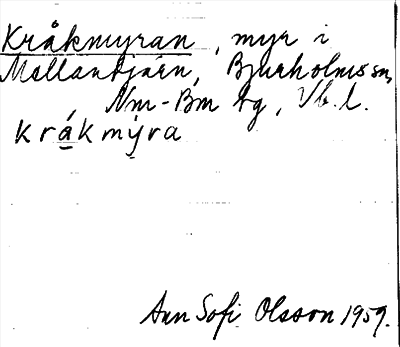 Kråkmyran, myr i
Mellantjärn, Bjurholms sn,
Nm-Bm tg, Vb. l.
kråkmyra
Ann Sofi Olsson 1959.